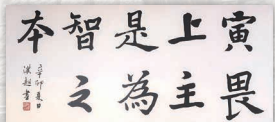 寅畏
上主
是為
智之
本
辛卯夏日
書